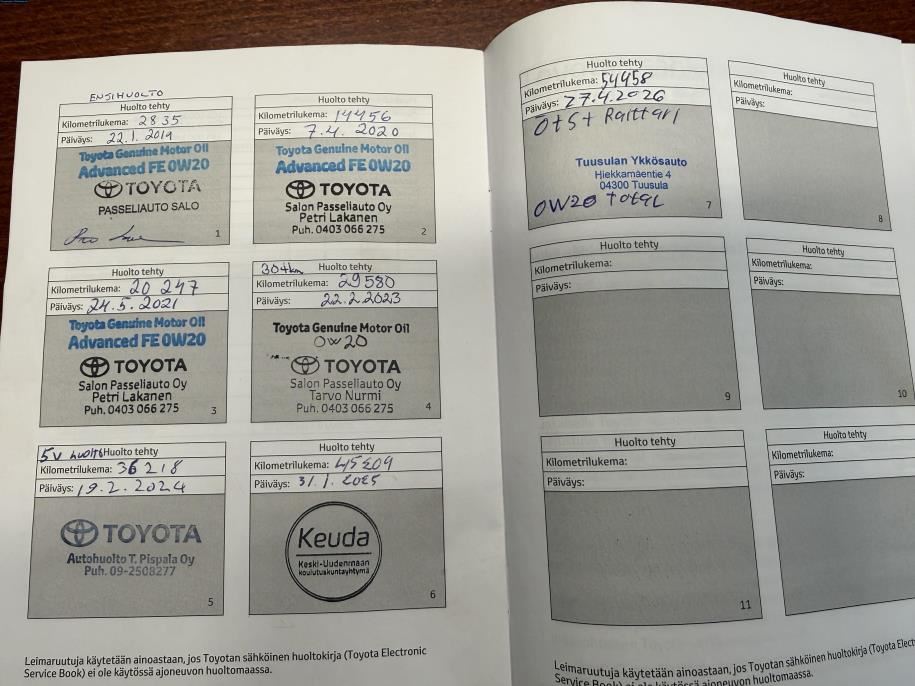 ENSIHUOLTO
Huolto tehty
Kilometrilukema: 2835
Päiväys: 22.1.2019
Toyota Genuine Motor Oil
Advanced FE 0W20
TOYOTA
PASSELIAUTO SALO
1
Huolto tehty
Kilometrilukema: 14456
Päiväys: 7.4.2020
Toyota Genuine Motor Oil
Advanced FE 0W20
TOYOTA
Salon Passeliauto Oy
Petri Lakanen
Puh. 0403 066 275
2
Huolto tehty
Kilometrilukema: 20 247
Päiväys: 24.5.2021
Toyota Genuine Motor Oil
Advanced FE 0W20
TOYOTA
Salon Passeliauto Oy
Petri Lakanen
Puh. 0403 066 275
3
30tkm Huolto tehty
Kilometrilukema: 29580
Päiväys: 22.2.2023
Toyota Genuine Motor Oil
0W20
TOYOTA
Salon Passeliauto Oy
Tarvo Nurmi
Puh. 0403 066 275
4
5v huolto Huolto tehty
Kilometrilukema: 36218
Päiväys: 19.2.2024
TOYOTA
Autohuolto T. Pispala Oy
Puh. 09-2508277
5
Huolto tehty
Kilometrilukema: 45204
Päiväys: 31.1.2025
Keuda
Keski-Uudenmaan
koulutuskuntayhtymä
6
Leimaruutuja käytetään ainoastaan, jos Toyotan sähköinen huoltokirja (Toyota Electronic
Service Book) ei ole käytössä ajoneuvon huoltomaassa.
Huolto tehty
Kilometrilukema: 54458
Päiväys: 27.4.2026
Ö+S+ Raittari
Tuusulan Ykkösauto
Hiekkamäentie 4
04300 Tuusula
0W20 Total
7
Huolto tehty
Kilometrilukema:
Päiväys:
8
Huolto tehty
Kilometrilukema:
Päiväys:
9
Huolto tehty
Kilometrilukema:
Päiväys:
10
Huolto tehty
Kilometrilukema:
Päiväys:
11
Huolto tehty
Kilometrilukema:
Päiväys:
Leimaruutuja käytetään ainoastaan, jos Toyotan sähköinen huoltokirja (Toyota
Service Book) ei ole käytössä ajoneuvon huoltomaassa.